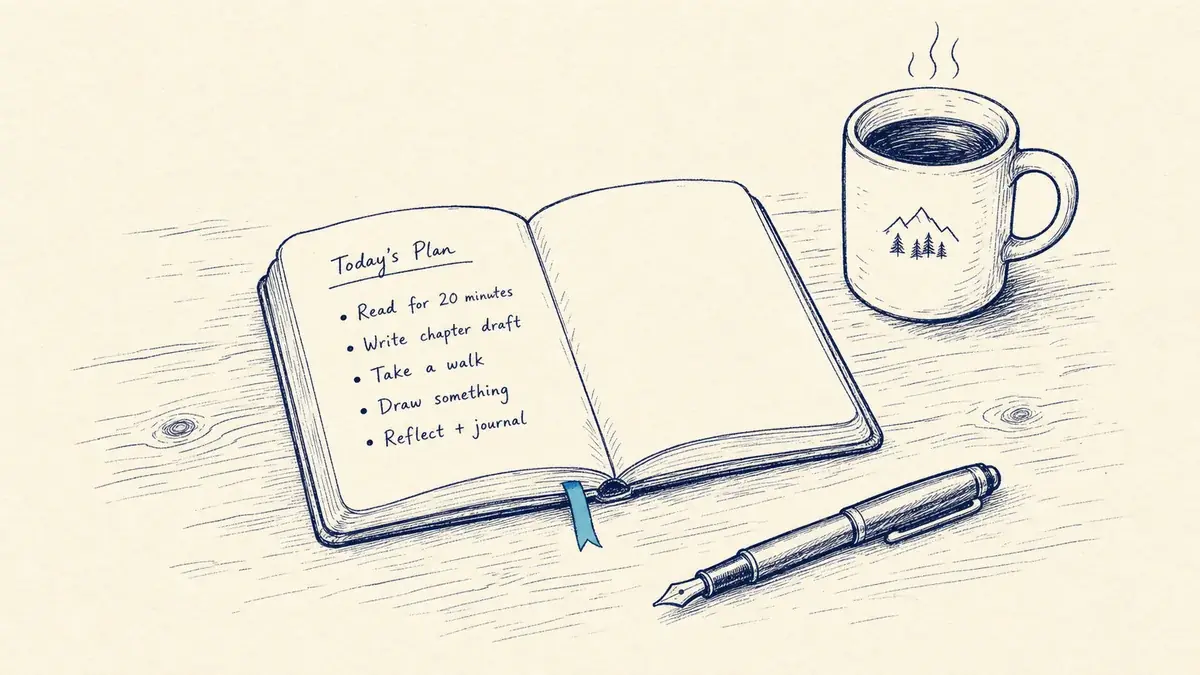 Today's Plan
• Read for 20 minutes
• Write chapter draft
• Take a walk
• Draw something
• Reflect + journal